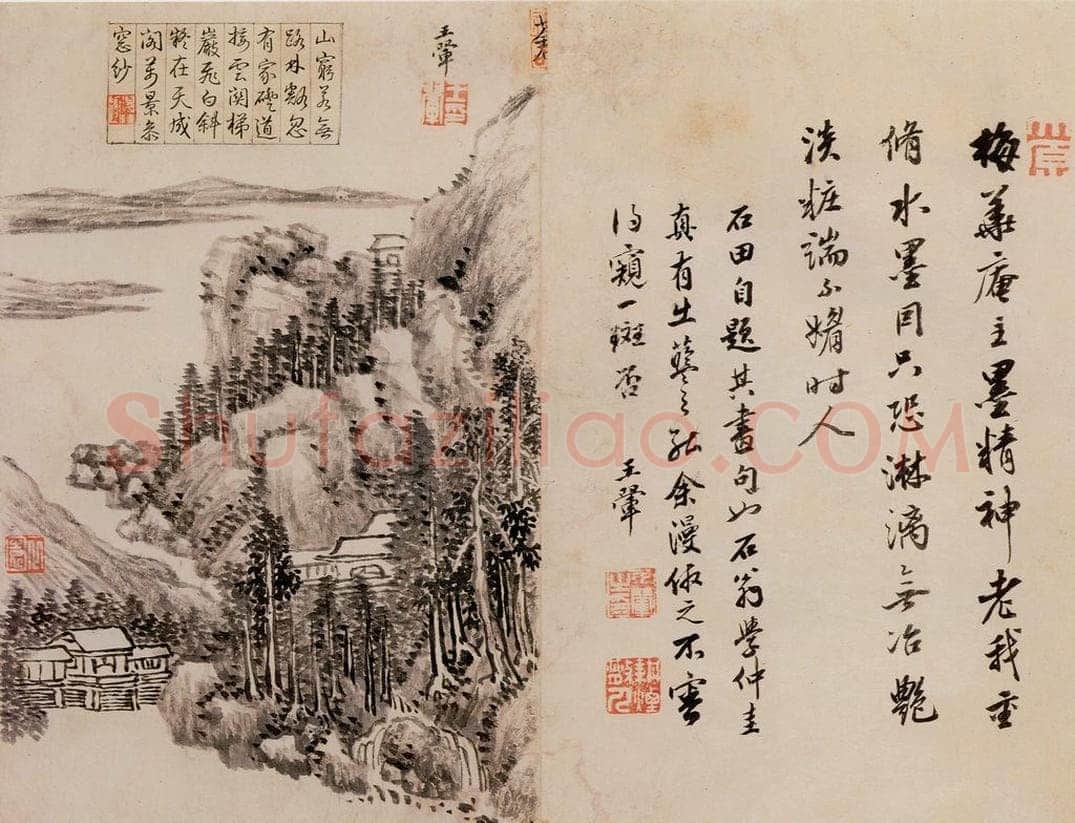 梅華庵主墨精神老我重
脩水墨因只恐淋漓無冶艷
淡粧端不媚時人
石田自題其畫句石翁學仲圭
真有出藍之能余漫仿之不審
得窺一斑否 王翬
王翬
山窮若無
路林豁忽
有家磴道
接雲関梯
巖飛白斜
在天成
閣萬景
窓紗
Shufaziliao.COM